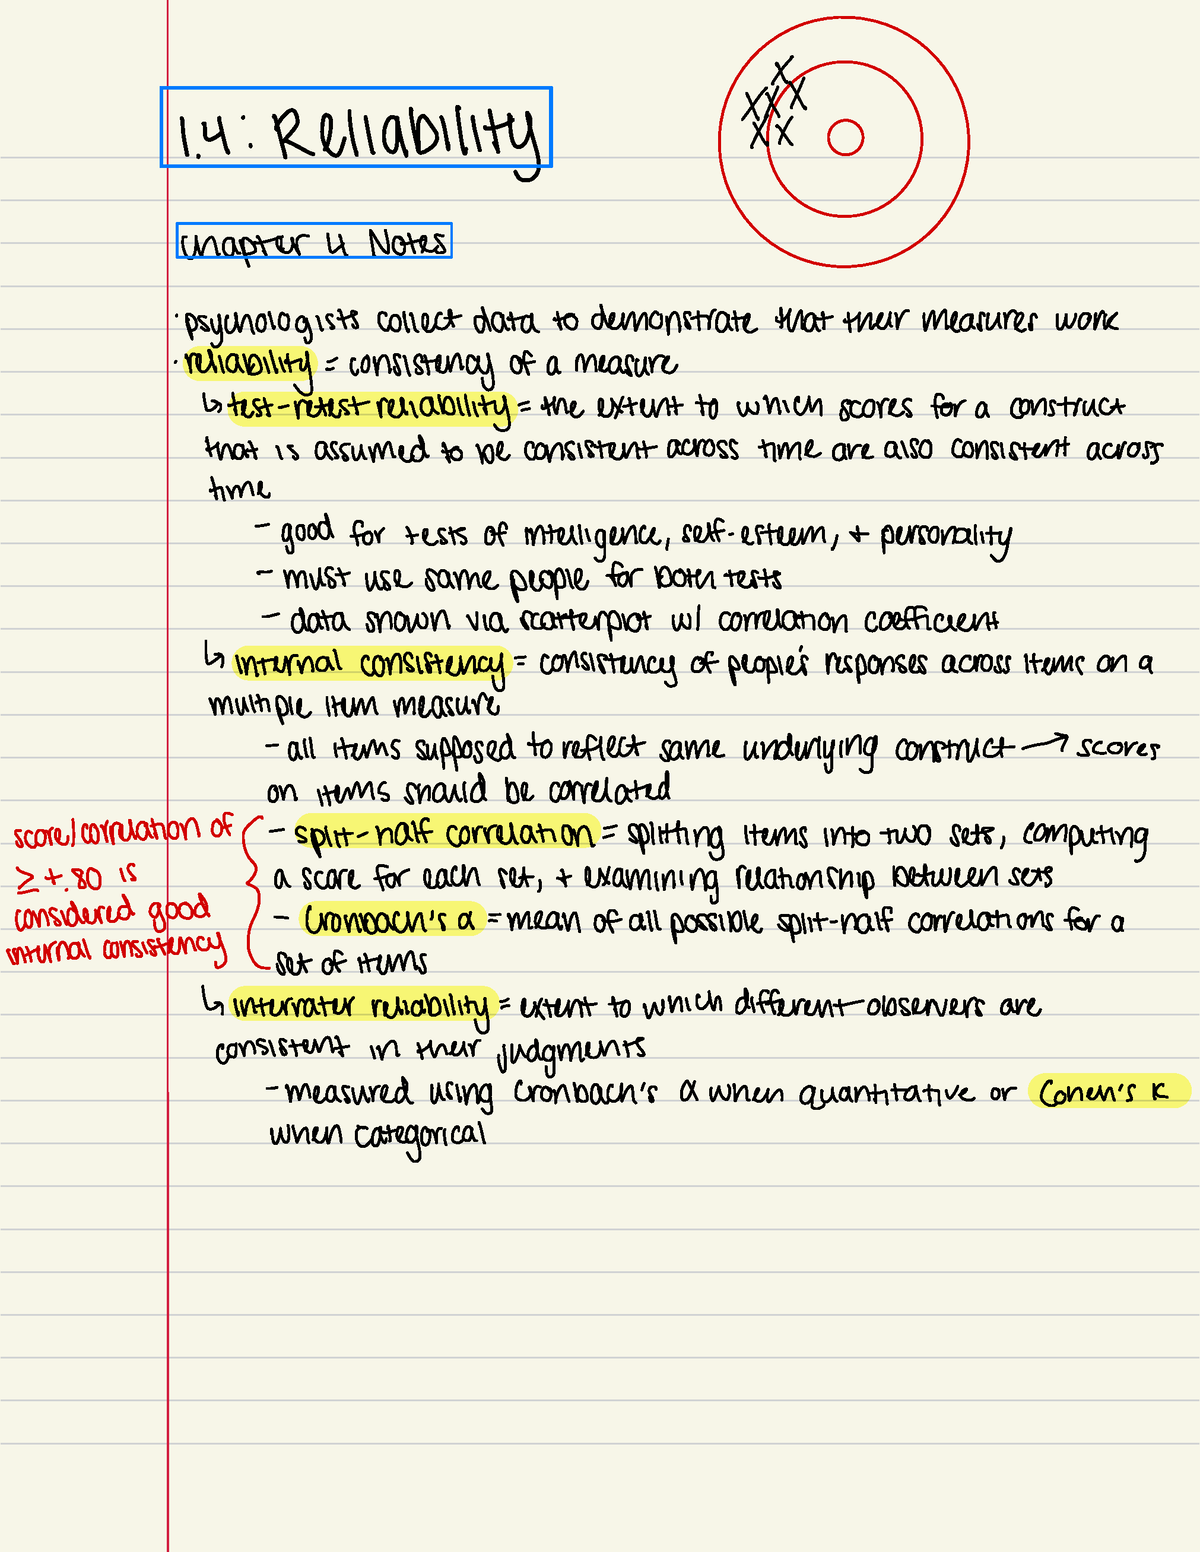 1.4: Reliability
Chapter 4 Notes
· psychologists collect data to demonstrate that their measures work
· reliability = consistency of a measure
↳ test-retest reliability = the extent to which scores for a construct
that is assumed to be consistent across time are also consistent across
time
- good for tests of intelligence, self-esteem, + personality
- must use same people for both tests
- data shown via scatterplot w/ correlation coefficient
↳ internal consistency = consistency of people's responses across items on a
multiple item measure
- all items supposed to reflect same underlying construct → scores
on items should be correlated
- split-half correlation = splitting items into two sets, computing
a score for each set, + examining relationship between sets
- Cronbach's α = mean of all possible split-half correlations for a
set of items
score/correlation of
≥ +.80 is
considered good
internal consistency
↳ interrater reliability = extent to which different observers are
consistent in their judgments
- measured using Cronbach's α when quantitative or Cohen's K
when categorical